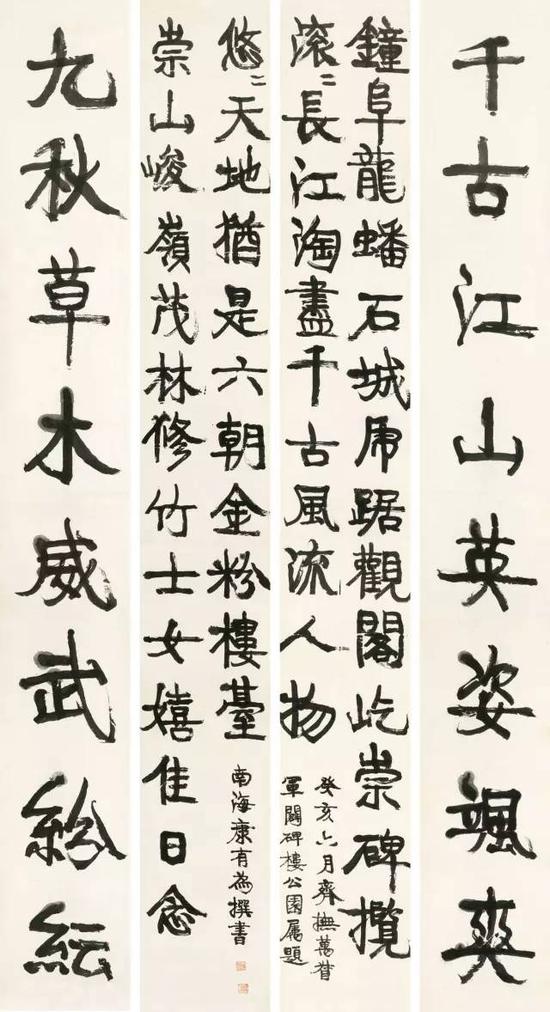 千古江山英姿颯爽
鐘阜龍蟠石城虎踞觀閣屹崇碑攬
滾〻長江淘盡千古風流人物
癸亥六月齊撫萬督
軍闢碑樓公園属題
崇山峻嶺茂林修竹士女嬉佳日念
悠〻天地猶是六朝金粉樓臺
南海康有為撰書
九秋草木威武紛紜